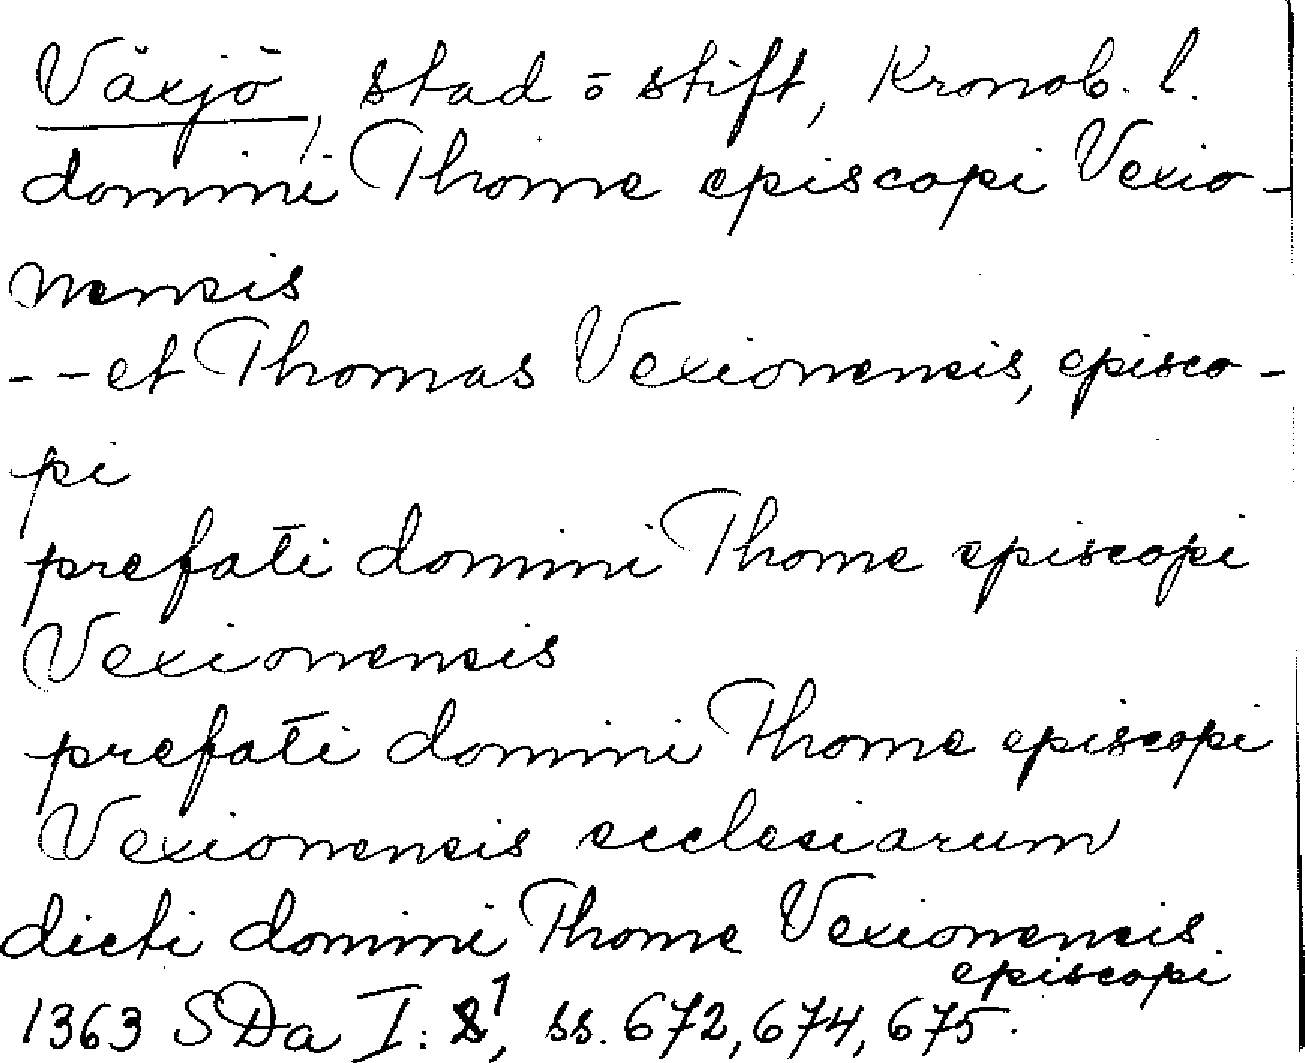 Växjö, stad o stift, Kronob. l.
domini Thome episcopi Vexio-
nensis
-- et Thomas Vexionensis, episco-
pi
prefati domini Thome episcopi
Vexionensis
prefati domini Thome episcopi
Vexionensis ecclesiarum
dicti domini Thome Vexionensis
episcopi
1363 SDa I: 1, ss. 672, 674, 675.